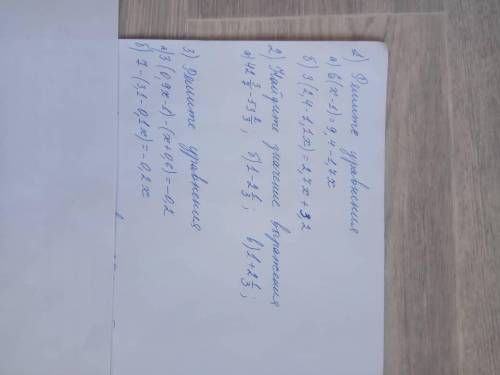 1) Решите уравнения
а) 6(x-1)=9,4-1,7x
б) 3(2,4-1,1x)=2,7x+3,2
2) Найдите значение выражения
а) 42 3/7 - 53 2/3; б) 1-2 1/3; в) 1+2 1/3;
3) Решите уравнения
а) 3(0,9x-1)-(x+0,6)=-0,2
б) 7-(3,1-0,1x)=-0,2x